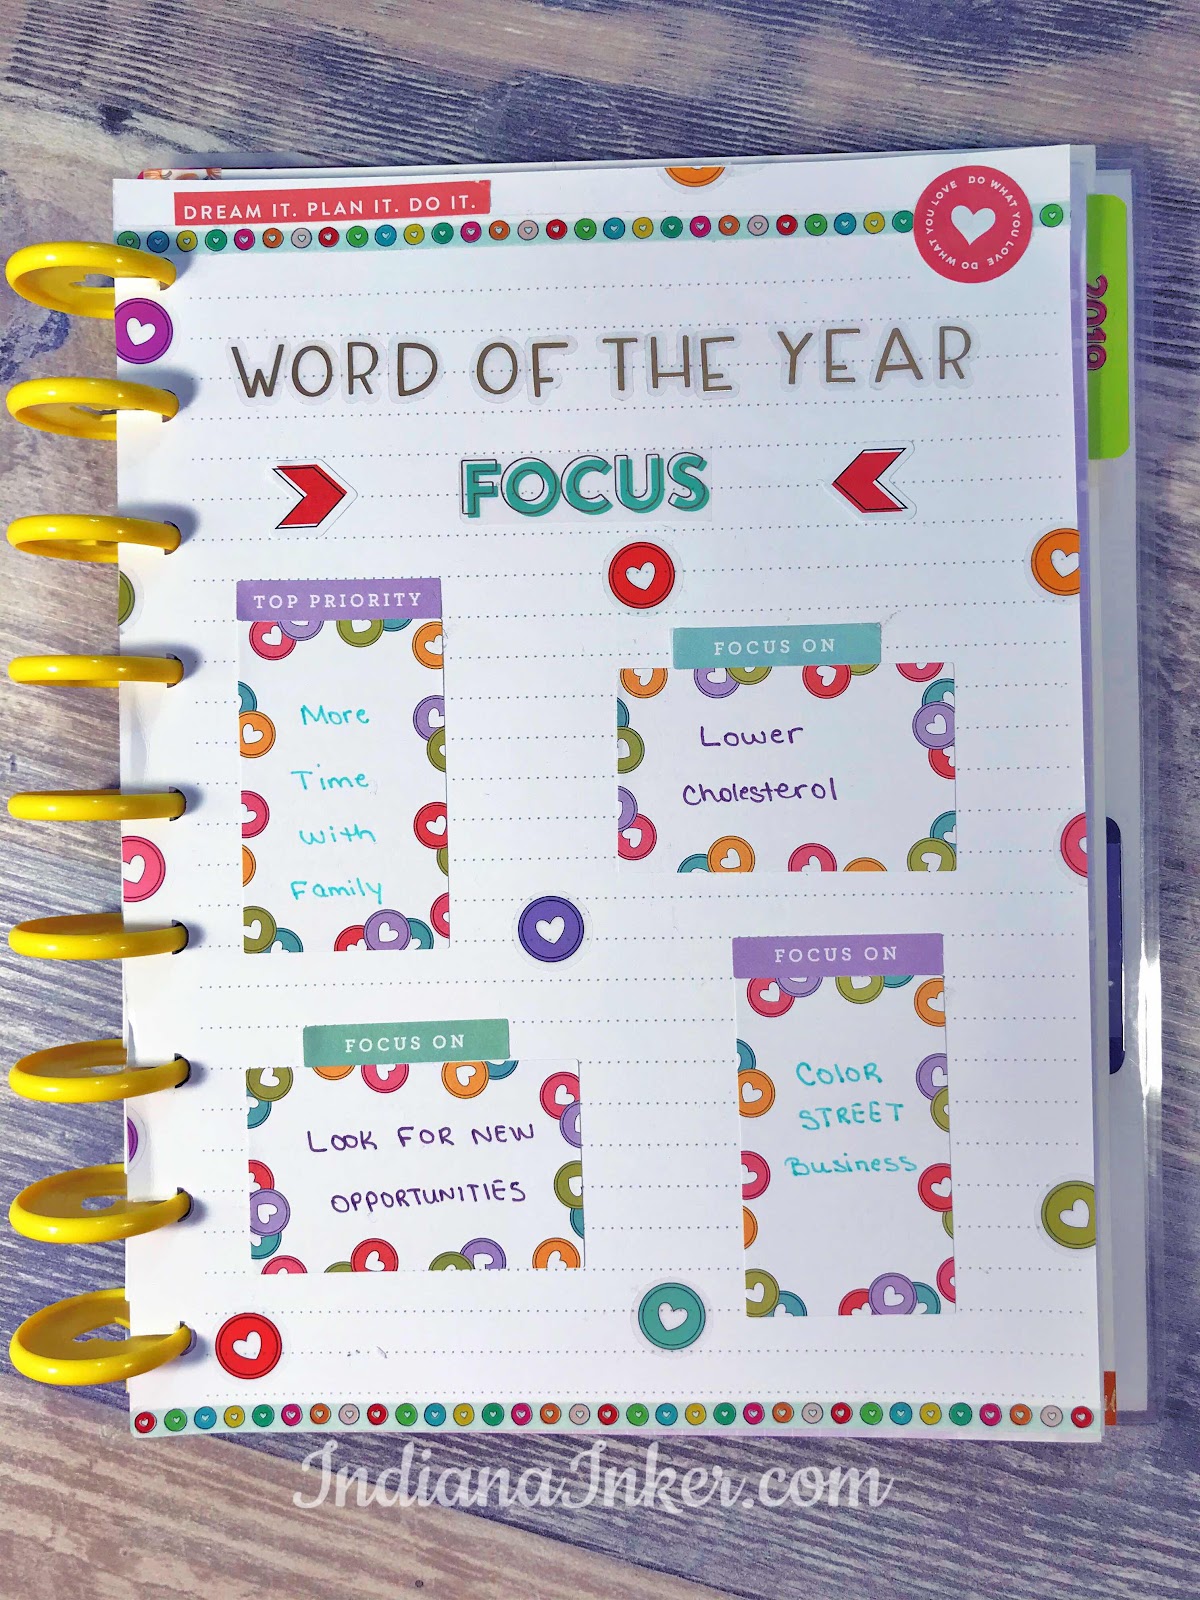 DREAM IT. PLAN IT. DO IT.
DO WHAT YOU LOVE DO WHAT YOU LOVE
2019
WORD OF THE YEAR
FOCUS
TOP PRIORITY
More
Time
with
Family
FOCUS ON
Lower
Cholesterol
FOCUS ON
LOOK FOR NEW
OPPORTUNITIES
FOCUS ON
COLOR
STREET
Business
IndianaInker.com